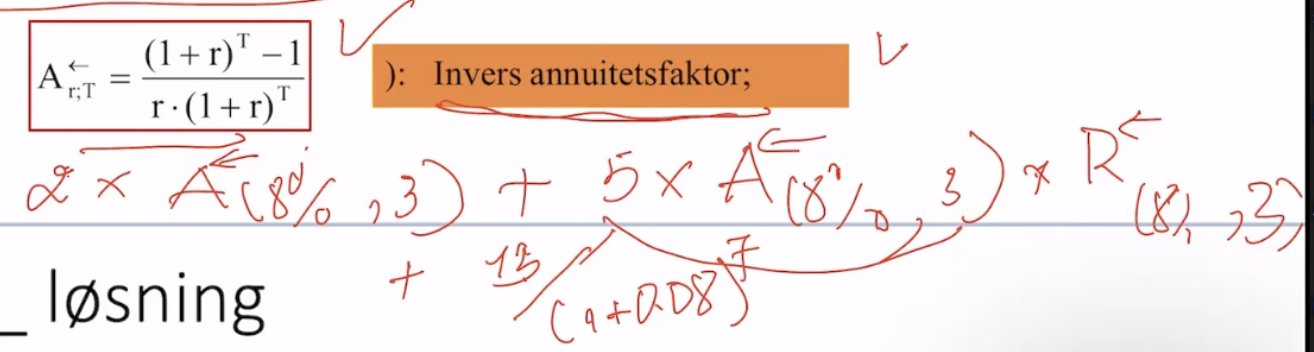 A←r;T = (1+r)^T −1 / r·(1+r)^T
): Invers annuitetsfaktor;
2 × A←(8%,3) + 5 × A←(8%,3) × R←(8%,3)
+ 15/(1+0.08)^7
_ løsning